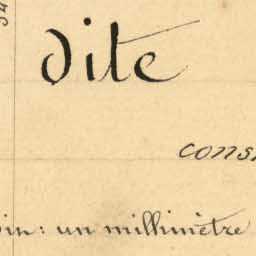 dite
cons
in: un millimètre